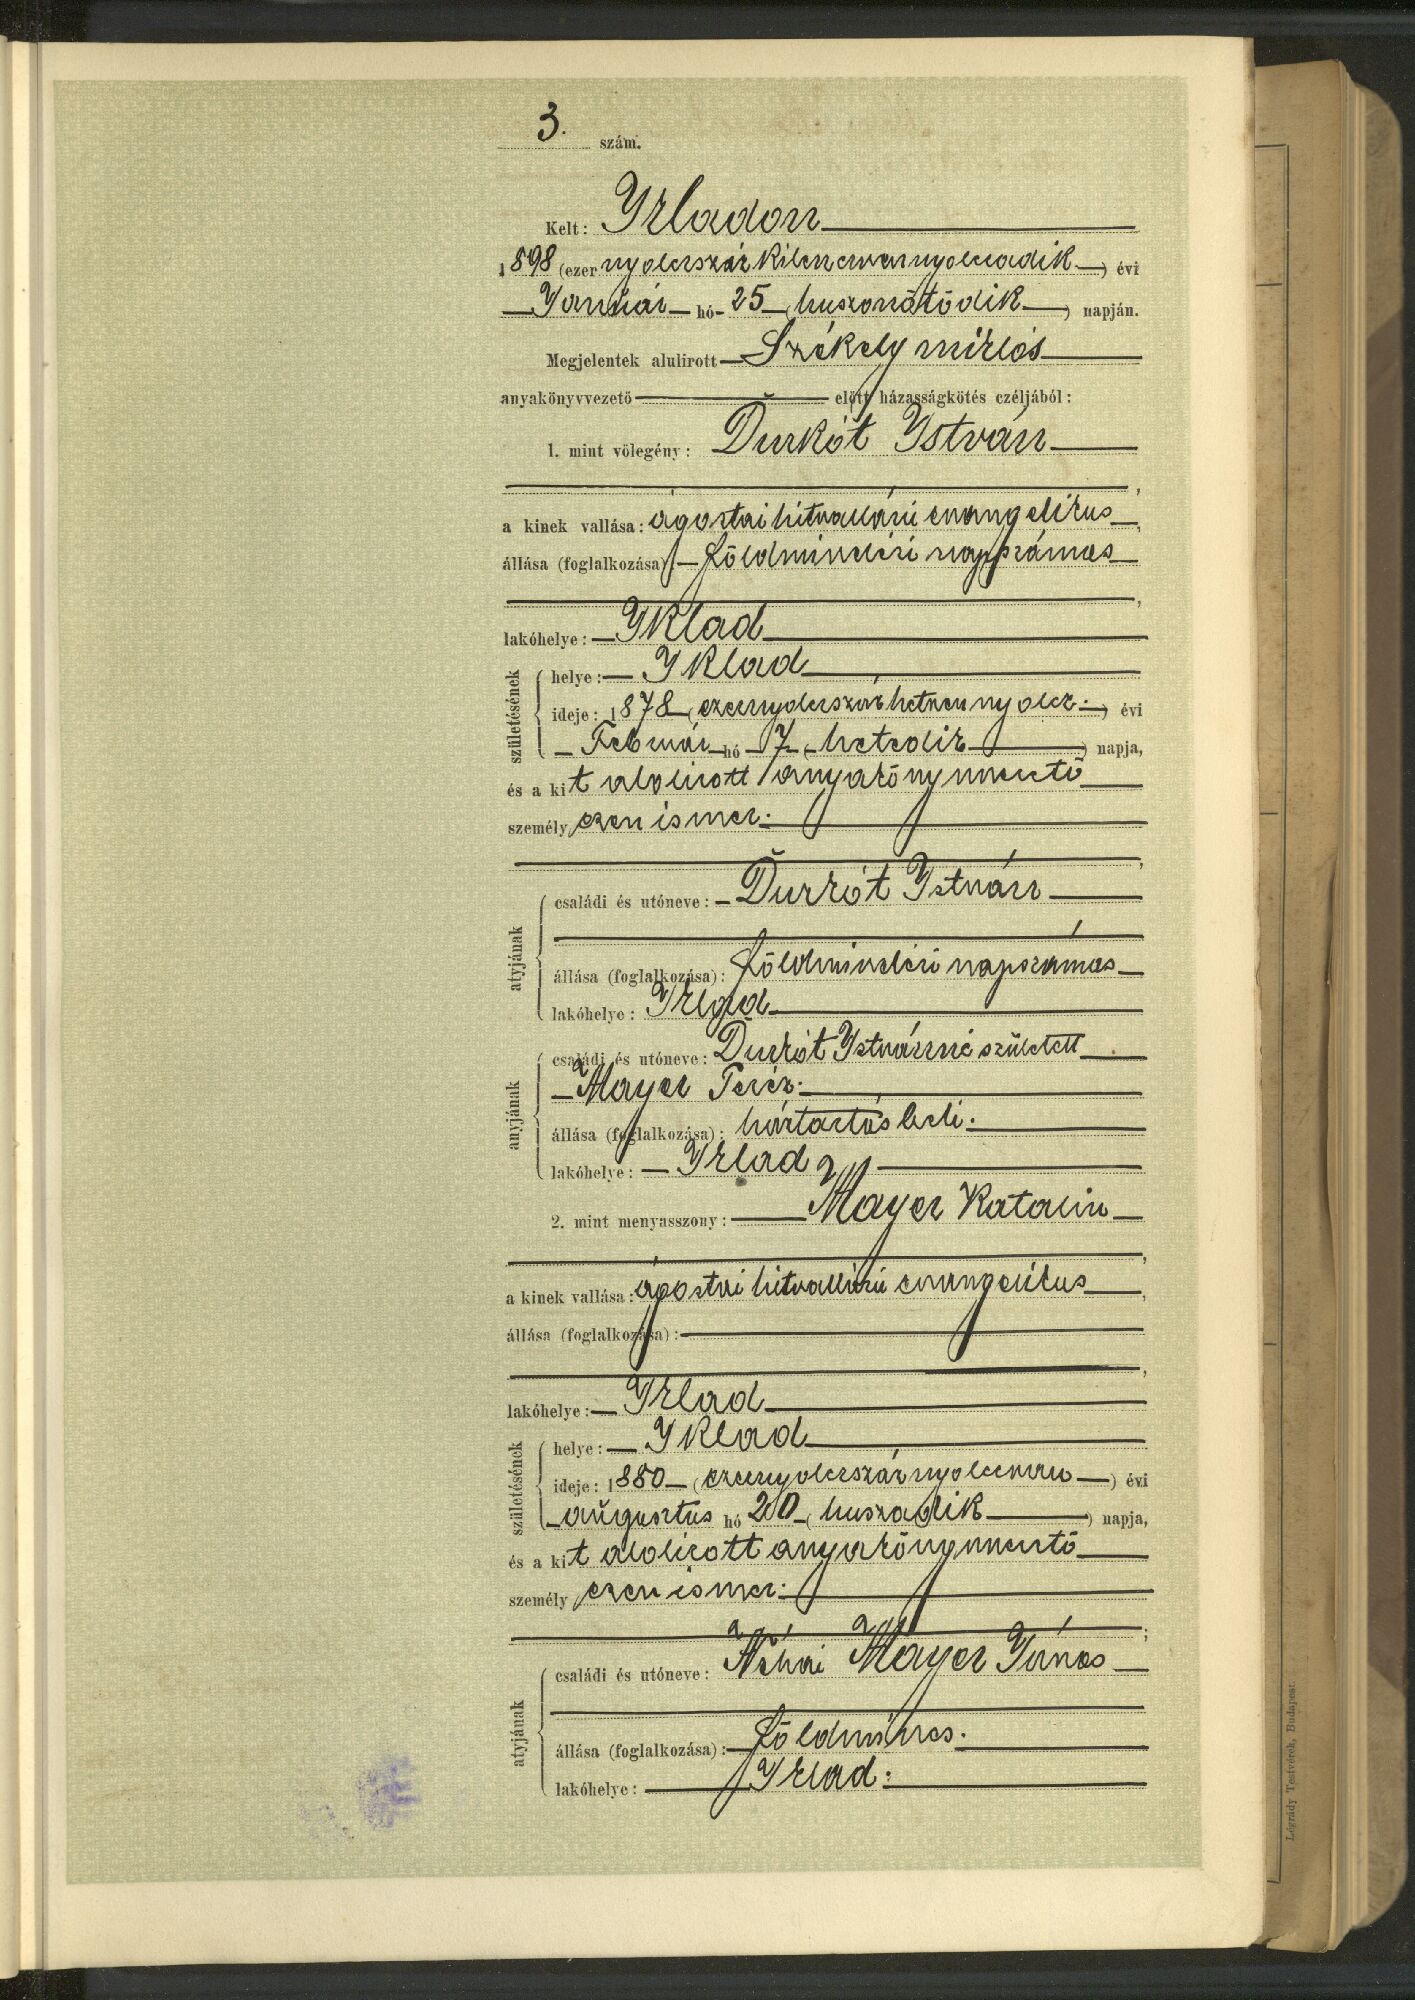 3. szám.
Kelt: Ikladon
1898 (ezer nyolczszáz kilenczvennyolczadik) évi
Január hó 25 (huszonötödik) napján.
Megjelentek alulirott Székely miklós
anyakönyvvezető előtt házasságkötés czéljából:
1. mint völegény: Durkót István
a kinek vallása: ágostai hitvallású evangelikus,
állása (foglalkozása): földmivelési napszámos
lakóhelye: Iklad
születésének
helye: Iklad
ideje: 1878 (ezernyolczszázhetvennyolcz.) évi
Február hó 7 (hetedik) napja,
és a kit alolirott anyakönyvvezető
személyesen ismer.
atyjának
családi és utóneve: Durkót István
állása (foglalkozása): földmivelési napszámos
lakóhelye: Iklad
anyjának
családi és utóneve: Durkót Istvánné született
Mayer Teréz.
állása (foglalkozása): háztartásbeli.
lakóhelye: Iklad
2. mint menyasszony: Mayer Katalin
a kinek vallása: ágostai hitvallású evangelikus,
állása (foglalkozása):
lakóhelye: Iklad
születésének
helye: Iklad
ideje: 1880 (ezernyolczszáznyolczvan) évi
augustus hó 20 (huszadik) napja,
és a kit alolirott anyakönyvvezető
személyesen ismer.
atyjának
családi és utóneve: Néhai Mayer János
állása (foglalkozása): földmíves.
lakóhelye: Iklad.
Légrády Testvérek, Budapest.